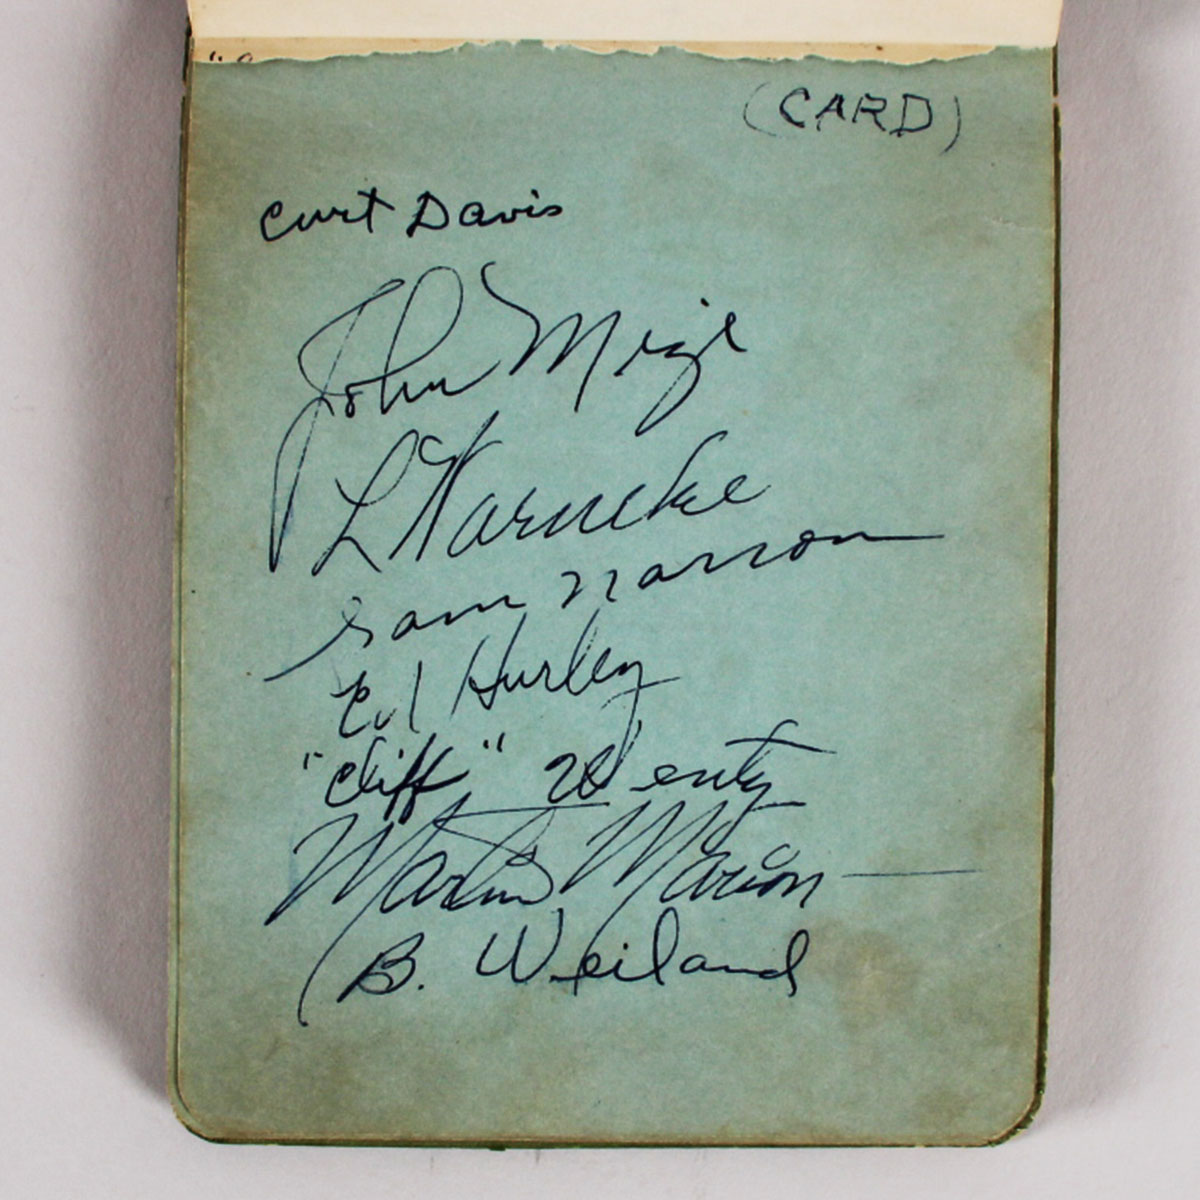 (CARD)
Curt Davis
John Mize
L Warneke
Sam Narron
Ed Hurley
"Cliff" Wentz
Martin Marion
B. Weiland